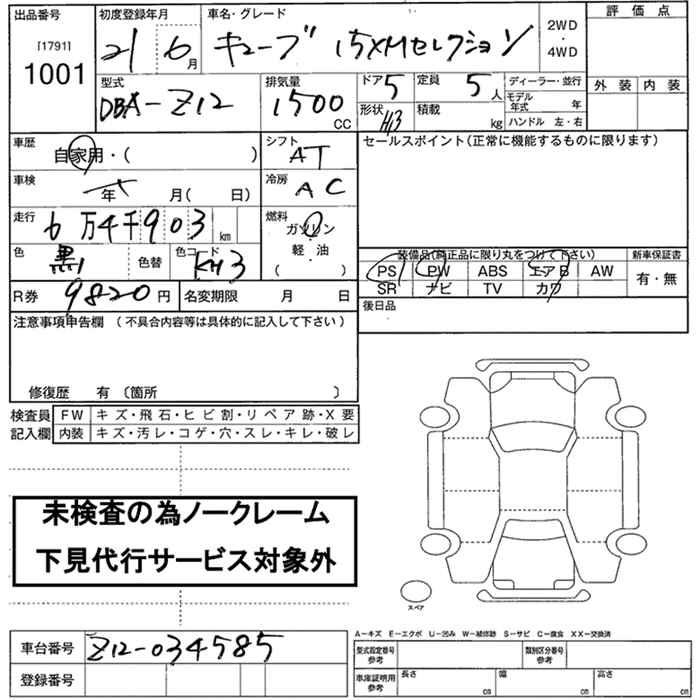 出品番号 初度登録年月 車名・グレード 評価点
[1791] 1001 21 6月 キューブ 15XMセレクション 2WD・4WD
外装 内装
型式 排気量 ドア 5 定員 5人 ディーラー・並行
DBA-Z12 1500CC 形状 積載 kg モデル年式 年
ハンドル 左・右
車歴 自家用・( ) シフト AT セールスポイント(正常に機能するものに限ります)
車検 年 月( 日) 冷房 AC
走行 6万4千903km 燃料 ガソリン
軽・油
( )
色 黒 色替 色コード KH3 装備品(純正品に限り丸をつけて下さい) 新車保証書
PS PW ABS エアB AW 有・無
R券 9820円 名変期限 月 日 SR ナビ TV カワ
注意事項申告欄 (不具合内容等は具体的に記入して下さい) 後日品
修復歴 有 〔箇所 〕
検査員 FW キズ・飛石・ヒビ割・リペア跡・X要
記入欄 内装 キズ・汚レ・コゲ・穴・スレ・キレ・破レ
未検査の為ノークレーム
下見代行サービス対象外
スペア
A-キズ E-エクボ U-凹み W-補修跡 S-サビ C-腐食 XX-交換済
車台番号 Z12-034585 型式指定番号 参考 類別区分番号 参考
登録番号 車庫証明用 参考 長さ cm 幅 cm 高さ cm